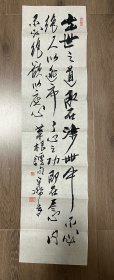 出世之道即在涉世中不必
絕人以逃世了心之功即在尽心内
不必絕欲以灰心 菜根譚